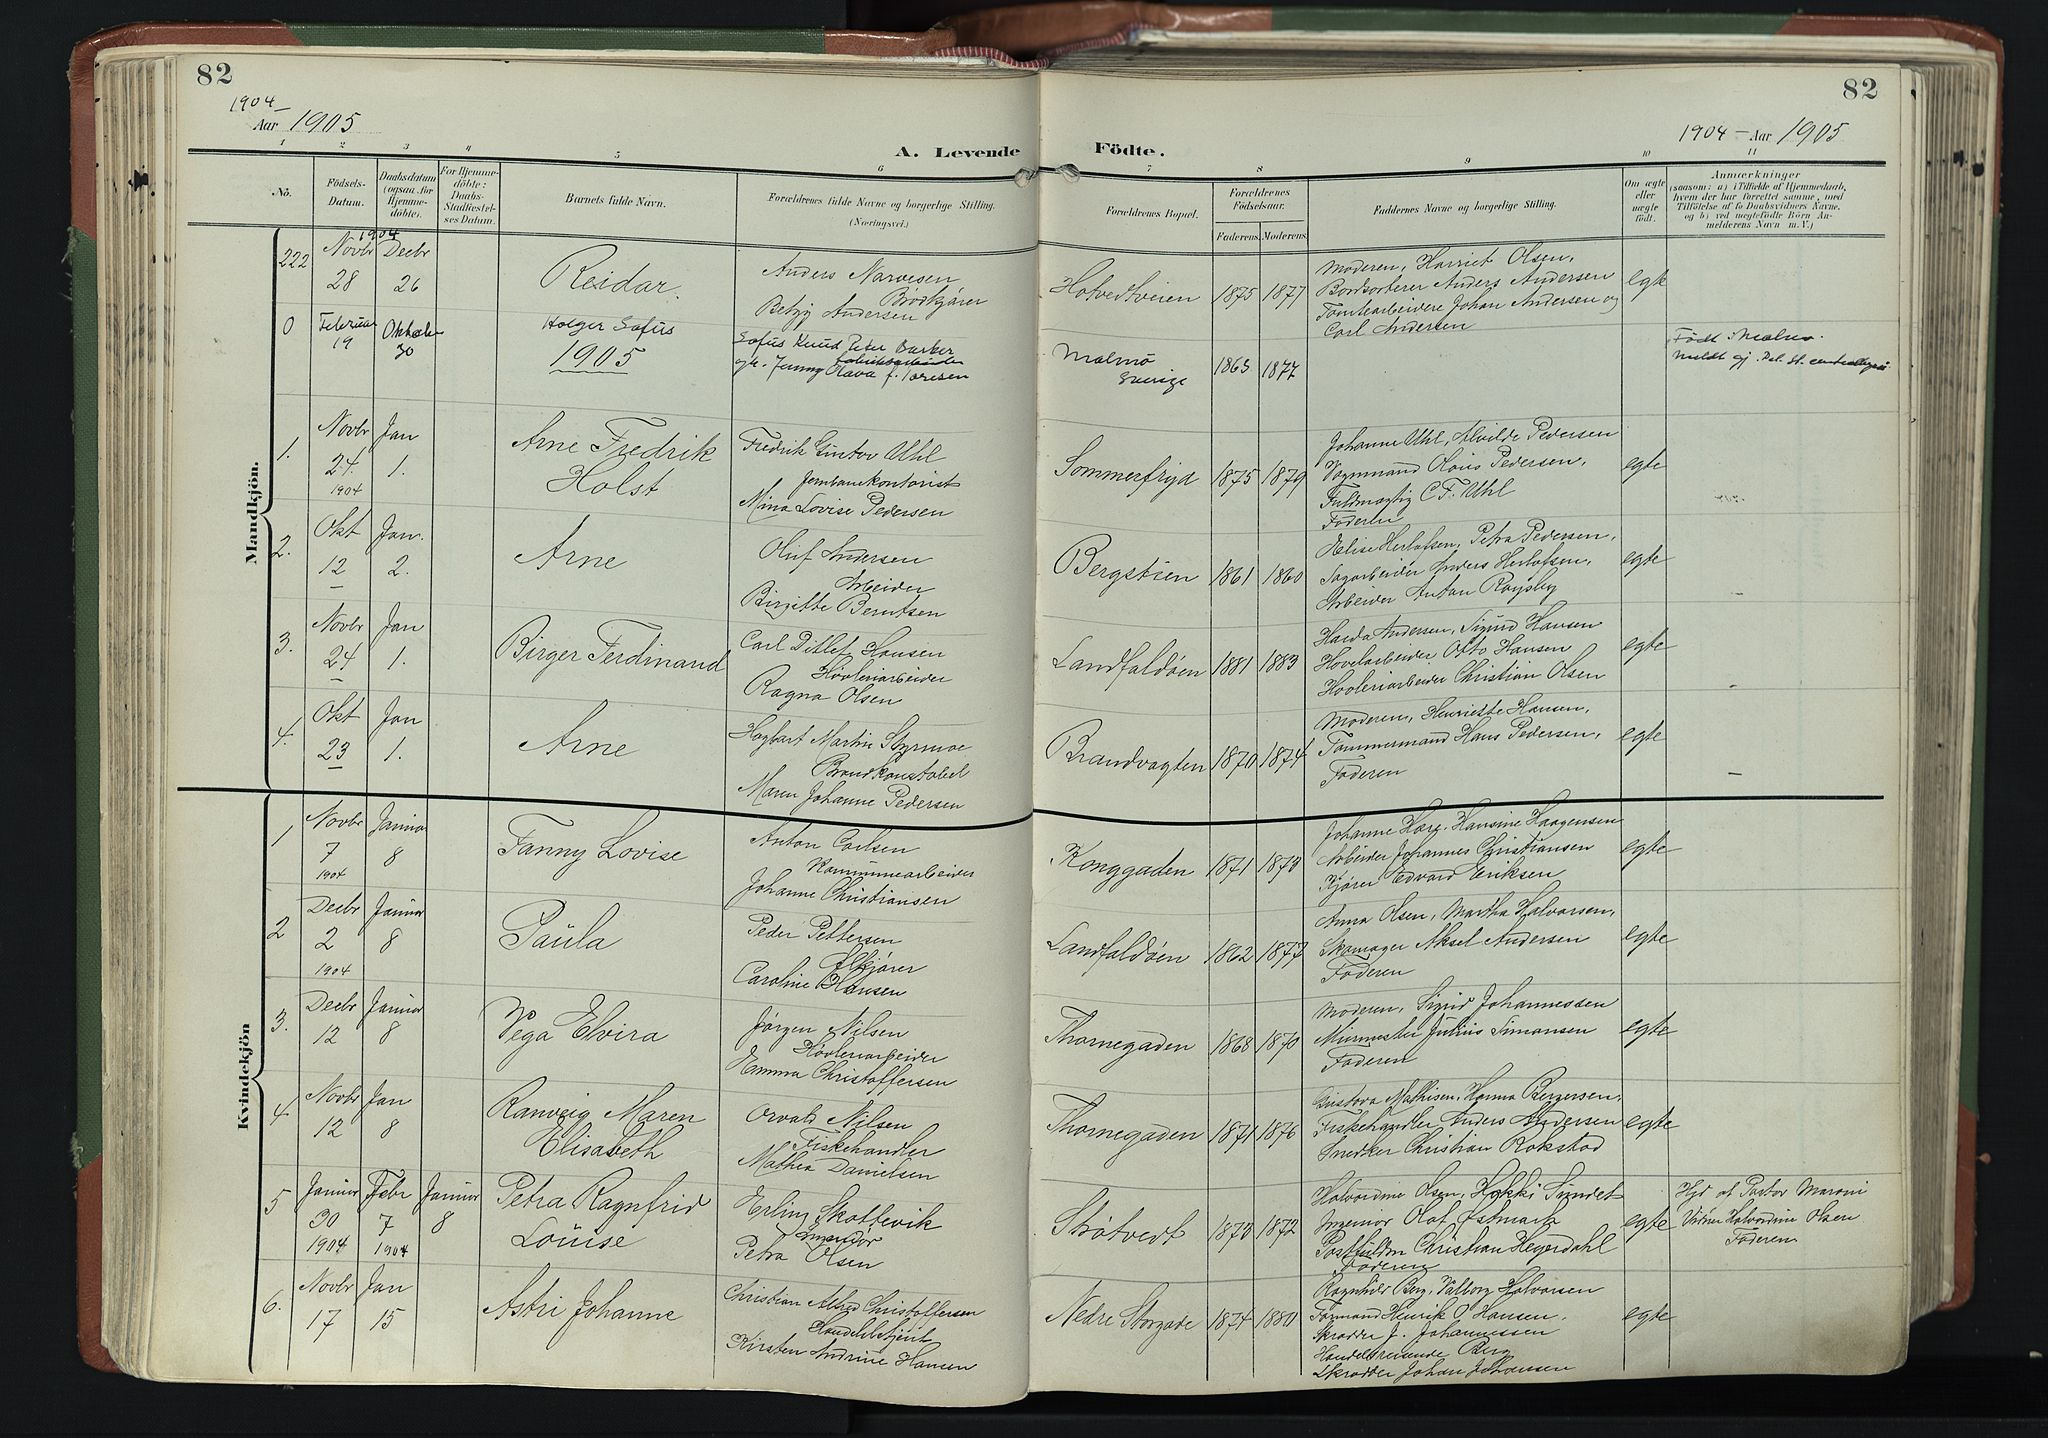 82
82
1904–
Aar 1905
1904 – Aar 1905
A. Levende Födte.
1 2 3 4 5 6 7 8 9 10 11
No.
Födsels-Datum.
Daabsdatum (ogsaa for Hjemme-döbte).
For Hjemme-döbte: Daabs-Stadfæstel-ses Datum.
Barnets fulde Navn.
Forældrenes fulde Navne og borgerlige Stilling.
(Næringsvei.)
Forældrenes Bopæl.
Forældrenes Födselsaar.
Faderens. Moderens.
Faddernes Navne og borgerlige Stilling.
Om ægte eller uægte födt.
Anmærkninger
(saasom: a) i Tilfælde af Hjemmedaab,
hvem der har forrettet samme, med
Tilföielse af to Daabsvidners Navne.
og b) ved uægtefödte Börn An-
melderens Navn m. V.)
Mandkjön.
1904
222 Novbr 28 Decbr 26
Reidar.
Anders Narvesen
Brödkjører
Betzy Andersen
Hotvedtveien 1875 1877
Moderen, Harriet Olsen,
Bordsorterer Anders Andersen
Tomtearbeidere Johan Andersen og
Carl Andersen
egte
0 Februar 19 Oktober 30
Holger Sofus
1905
Sofus Knud Peter Barker
Jenny Olava f. Toresen
Malmö
Sverige
1863 1877
Født i Malmö.
1. Novbr 24. 1904 Jan 1.
Arne Fredrik
Holst
Fredrik Gustav Uhl
Jernbanekontorist
Mina Lovise Pedersen
Sommerfryd 1875 1879
Johanne Uhl, Alvilde Pedersen
Vognmand Olaus Pedersen,
Fuldmægtig C.F. Uhl
Faderen
egte
2. Okt 12 Jan. 2.
Arne
Oluf Andersen
Arbeider
Birgitte Berntsen
Bergstien 1861 1860
Elise Herlofsen, Petra Pedersen,
Sagarbeider Anders Herlofsen,
Arbeider Anton Røysby
egte
3. Novbr 24 Jan 1.
Birger Ferdinand
Carl Ditlef Hansen
Høvleriarbeider
Ragna Olsen
Landfaldøen 1881 1883
Hulda Andersen, Sigurd Hansen
Høvelarbeider Otto Hansen
Høvleriarbeider Christian Olsen
egte
4. Okt 23 Jan 1.
Arne
Hagbart Martin Styrmoe
Brandkonstabel
Maren Johanne Pedersen
Brandvagten 1870 1874
Moderen, Henriette Hansen,
Tømmermand Hans Pedersen,
Faderen
egte
Kvindekjön
1 Novbr 7 1904 Januar 8
Fanny Lovise
Anton Carlsen
Kommunearbeider
Johanne Christiansen
Konggaden 1871 1873
Johanne Harg, Hansine Haagensen
Arbeider Johannes Christiansen
Kjører Edvard Eriksen
egte
2 Decbr 2 1904 Januar 8
Paula
Peder Pettersen
Ølkjører
Caroline Hansen
Landfaldøen 1862 1877
Anna Olsen, Martha Halvorsen,
Skomager Aksel Andersen
Faderen
egte
3. Decbr 12 Januar 8
Vega Elvira
Jørgen Nilsen
Høvleriarbeider
Emma Christoffersen
Thornegaden 1868 1870
Moderen, Sigrid Johannessen
Murmester Julius Simonsen
Faderen
egte
4 Novbr 12 Jan 8
Ranveig Maren
Elisabeth
Orvald Nilsen
Fiskehandler
Mathea Danielsen
Thornegaden 1871 1876
Gustava Mathisen, Hanna Bergersen,
Fiskehandler Anders Andersen
Snedker Christian Rokstad
egte
5 Januar 30 1904 Febr 7 1904 Januar 8
Petra Ragnfrid
Louise
Erling Skottevik
Ingeniør
Petra Olsen
Støtvedt 1873 1872
Halvardine Olsen, Hokki Sundet
Ingeniør Olaf Østmark
Postfuldm Christian Heyerdahl
Faderen
egte
Hjd af Pastor Maroni
Vidner Halvardine Olsen
Faderen
6. Novbr 17 Jan 15
Astri Johanne
Christian Alfred Christoffersen
Handelsbetjent
Kirsten Andrine Hansen
Nedre Storgade 1874 1880
Ragnhild Berg, Valborg Halvorsen
Formand Henrik C Hansen.
Skrædder J. Johannessen
Handelsreisende Berg
Skrædder Johan Johansen
egte